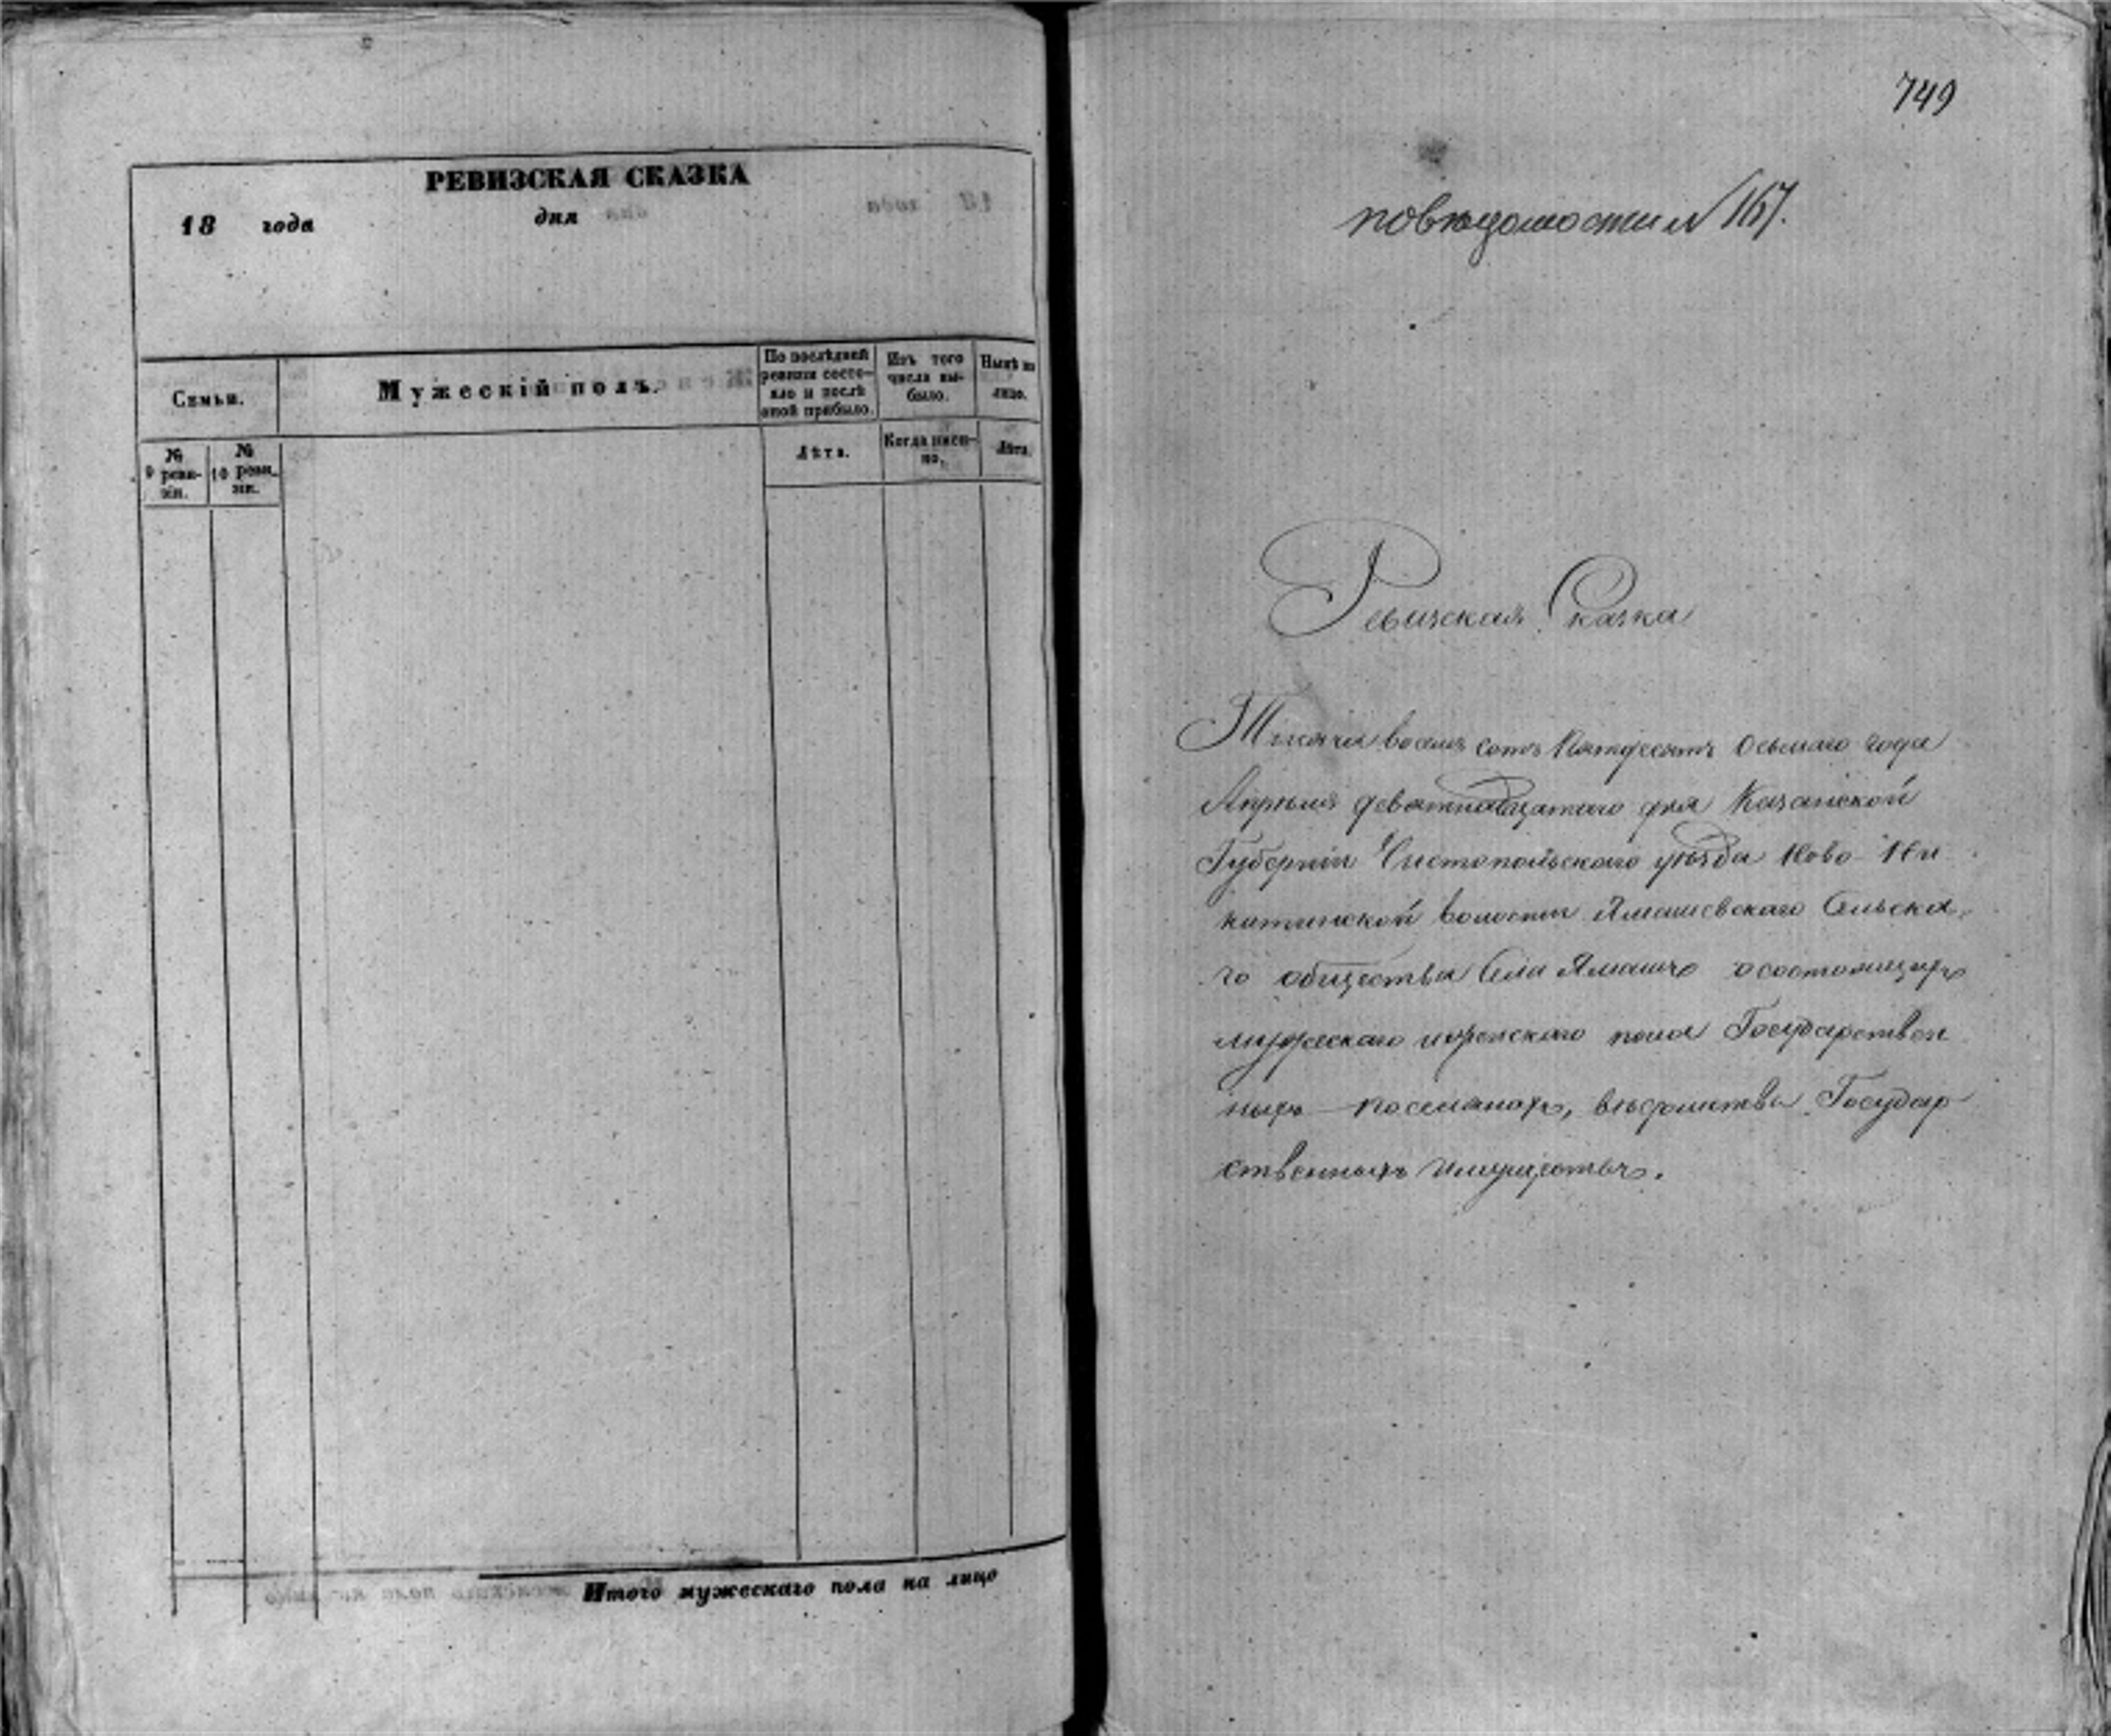 РЕВИЗСКАЯ СКАЗКА
18 года дня
Семьи.
Мужескій полъ.
По послѣдней ревизіи состояло и послѣ оной прибыло.
Изъ того числа выбыло.
Нынѣ на лицо.
№ 9 ревизіи.
№ 10 ревизіи.
Лѣта.
Когда именно.
Лѣта.
Итого мужескаго пола на лицо
749
повѣдомости № 167.
Ревизская Сказка
Тысяча восемь сотъ Пятдесятъ Осьмаго года
Апрѣля девятнадцатаго дня Казанской
Губерніи Чистопольскаго уѣзда Ново-Ни
китинской волости Ямашевскаго Сельска
го общества Села Ямашъ осостоящихъ
мужескаго иженскаго пола Государствен
ныхъ поселянахъ, вѣдомства Государ
ственныхъ Имуществъ.